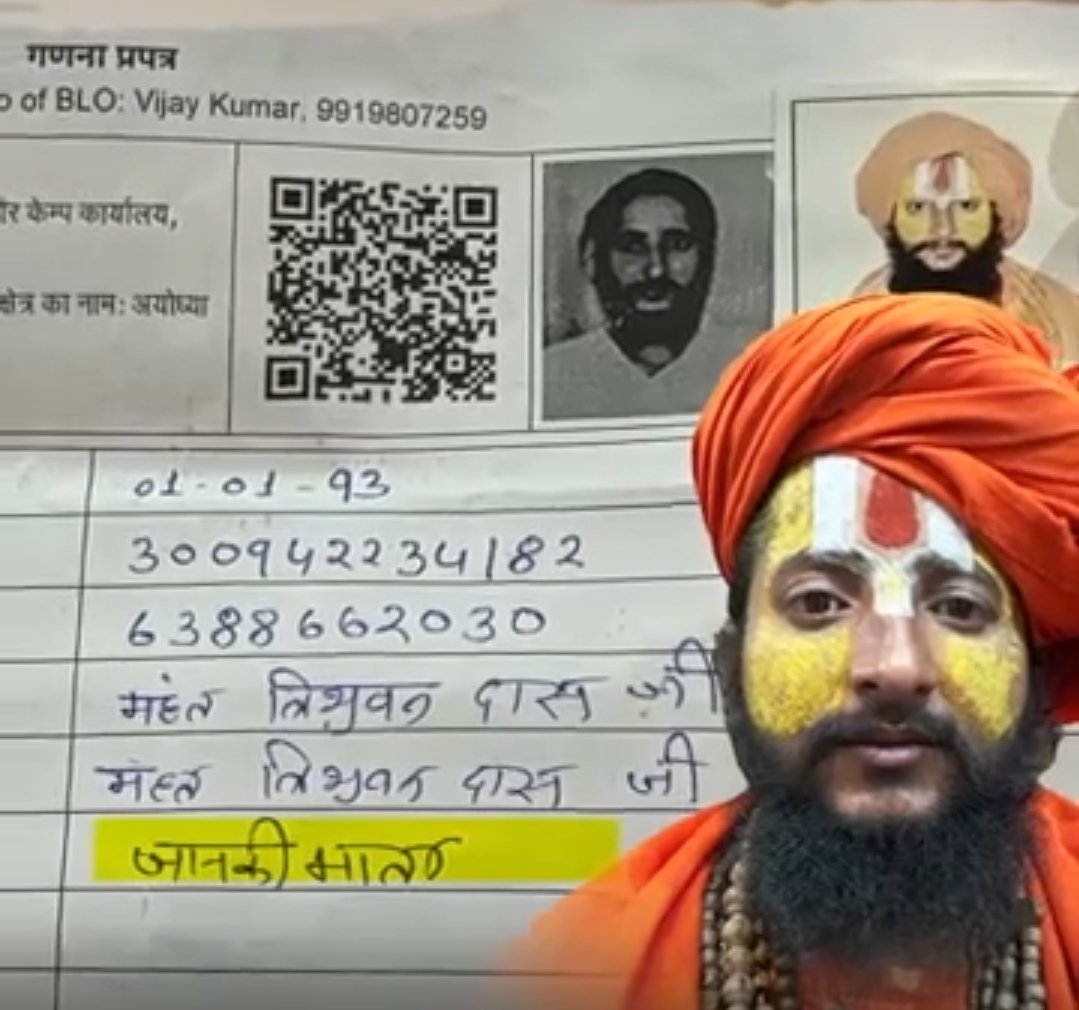 गणना प्रपत्र
o of BLO: Vijay Kumar, 9919807259
केम्प कार्यालय,
क्षेत्र का नाम: अयोध्या
01-01-93
300942234182
6388662030
महंत त्रिभुवन दास जी
महंत त्रिभुवन दास जी
जानकी माता